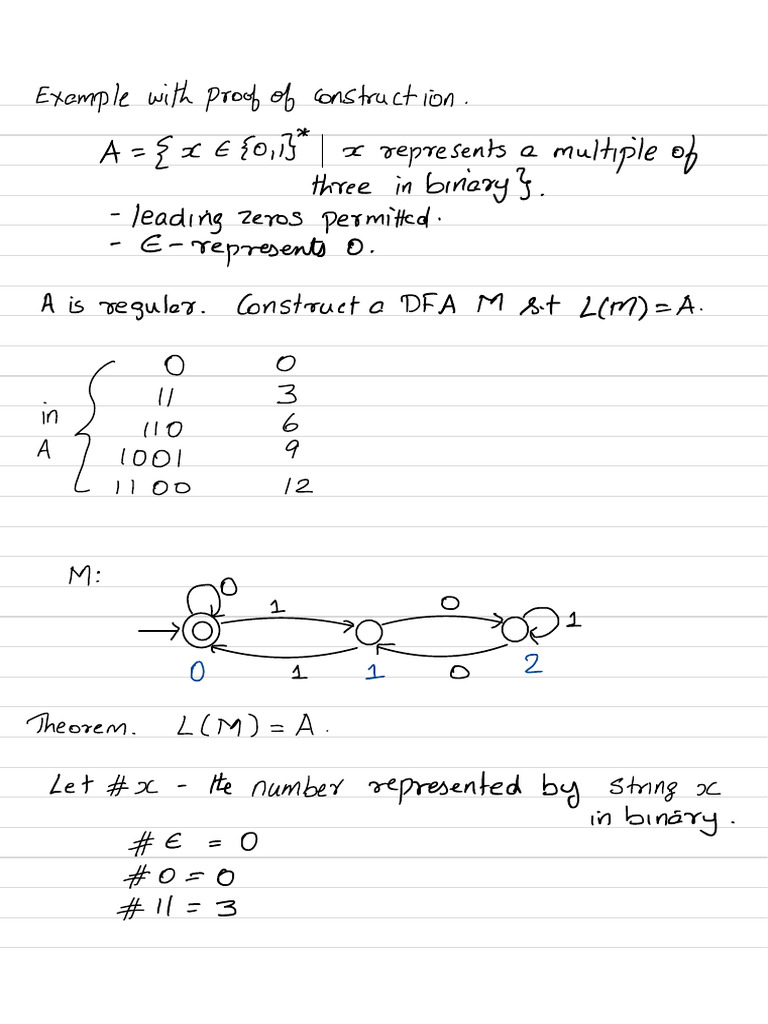 Example with proof of construction.
A = { x ∈ {0,1}* | x represents a multiple of
three in binary}.
- leading zeros permitted.
- ϵ - represents 0.
A is regular. Construct a DFA M s.t L(M) = A.
in A
0 0
11 3
110 6
1001 9
1100 12
M:
0 1 0 1
0 1 1 0 2
Theorem. L(M) = A.
Let #x - the number represented by string x
in binary.
# ϵ = 0
# 0 = 0
# 11 = 3